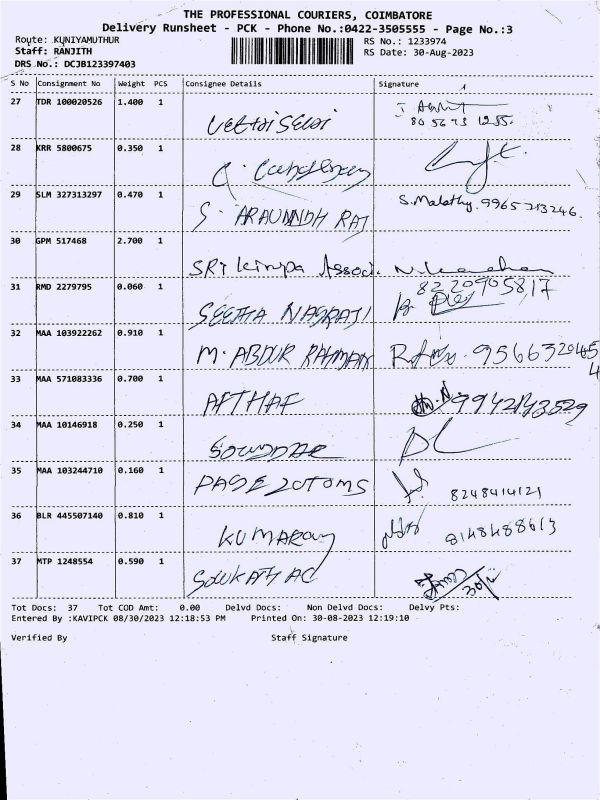 THE PROFESSIONAL COURIERS, COIMBATORE
Delivery Runsheet - PCK - Phone No.:0422-3505555 - Page No.:3
Route: KUNIYAMUTHUR
RS No.: 1233974
Staff: RANJITH
RS Date: 30-Aug-2023
DRS No.: DCJB123397403
S No Consignment No Weight PCS Consignee Details Signature
27 TDR 100020526 1.400 1
80 56 73 1255.
28 KRR 5800675 0.350 1
29 SLM 327313297 0.470 1 S. ARAUNNDH RAJ S. Malathy. 9965213246.
30 GPM 517468 2.700 1 SRI kirupa Associ.
8220905817
31 RMD 2279795 0.060 1 SEETHA NAGRAJ
32 MAA 103922262 0.910 1 M. ABDUR RAHMAN
33 MAA 571083336 0.700 1 AFTHAF
34 MAA 10146918 0.250 1 SOUNDAR
35 MAA 103244710 0.160 1 8248414121
36 BLR 445507140 0.810 1 8148488613
37 MTP 1248554 0.590 1
Tot Docs: 37 Tot COD Amt: 0.00 Delvd Docs: Non Delvd Docs: Delvy Pts:
Entered By :KAVIPCK 08/30/2023 12:18:53 PM Printed On: 30-08-2023 12:19:10
Verified By Staff Signature